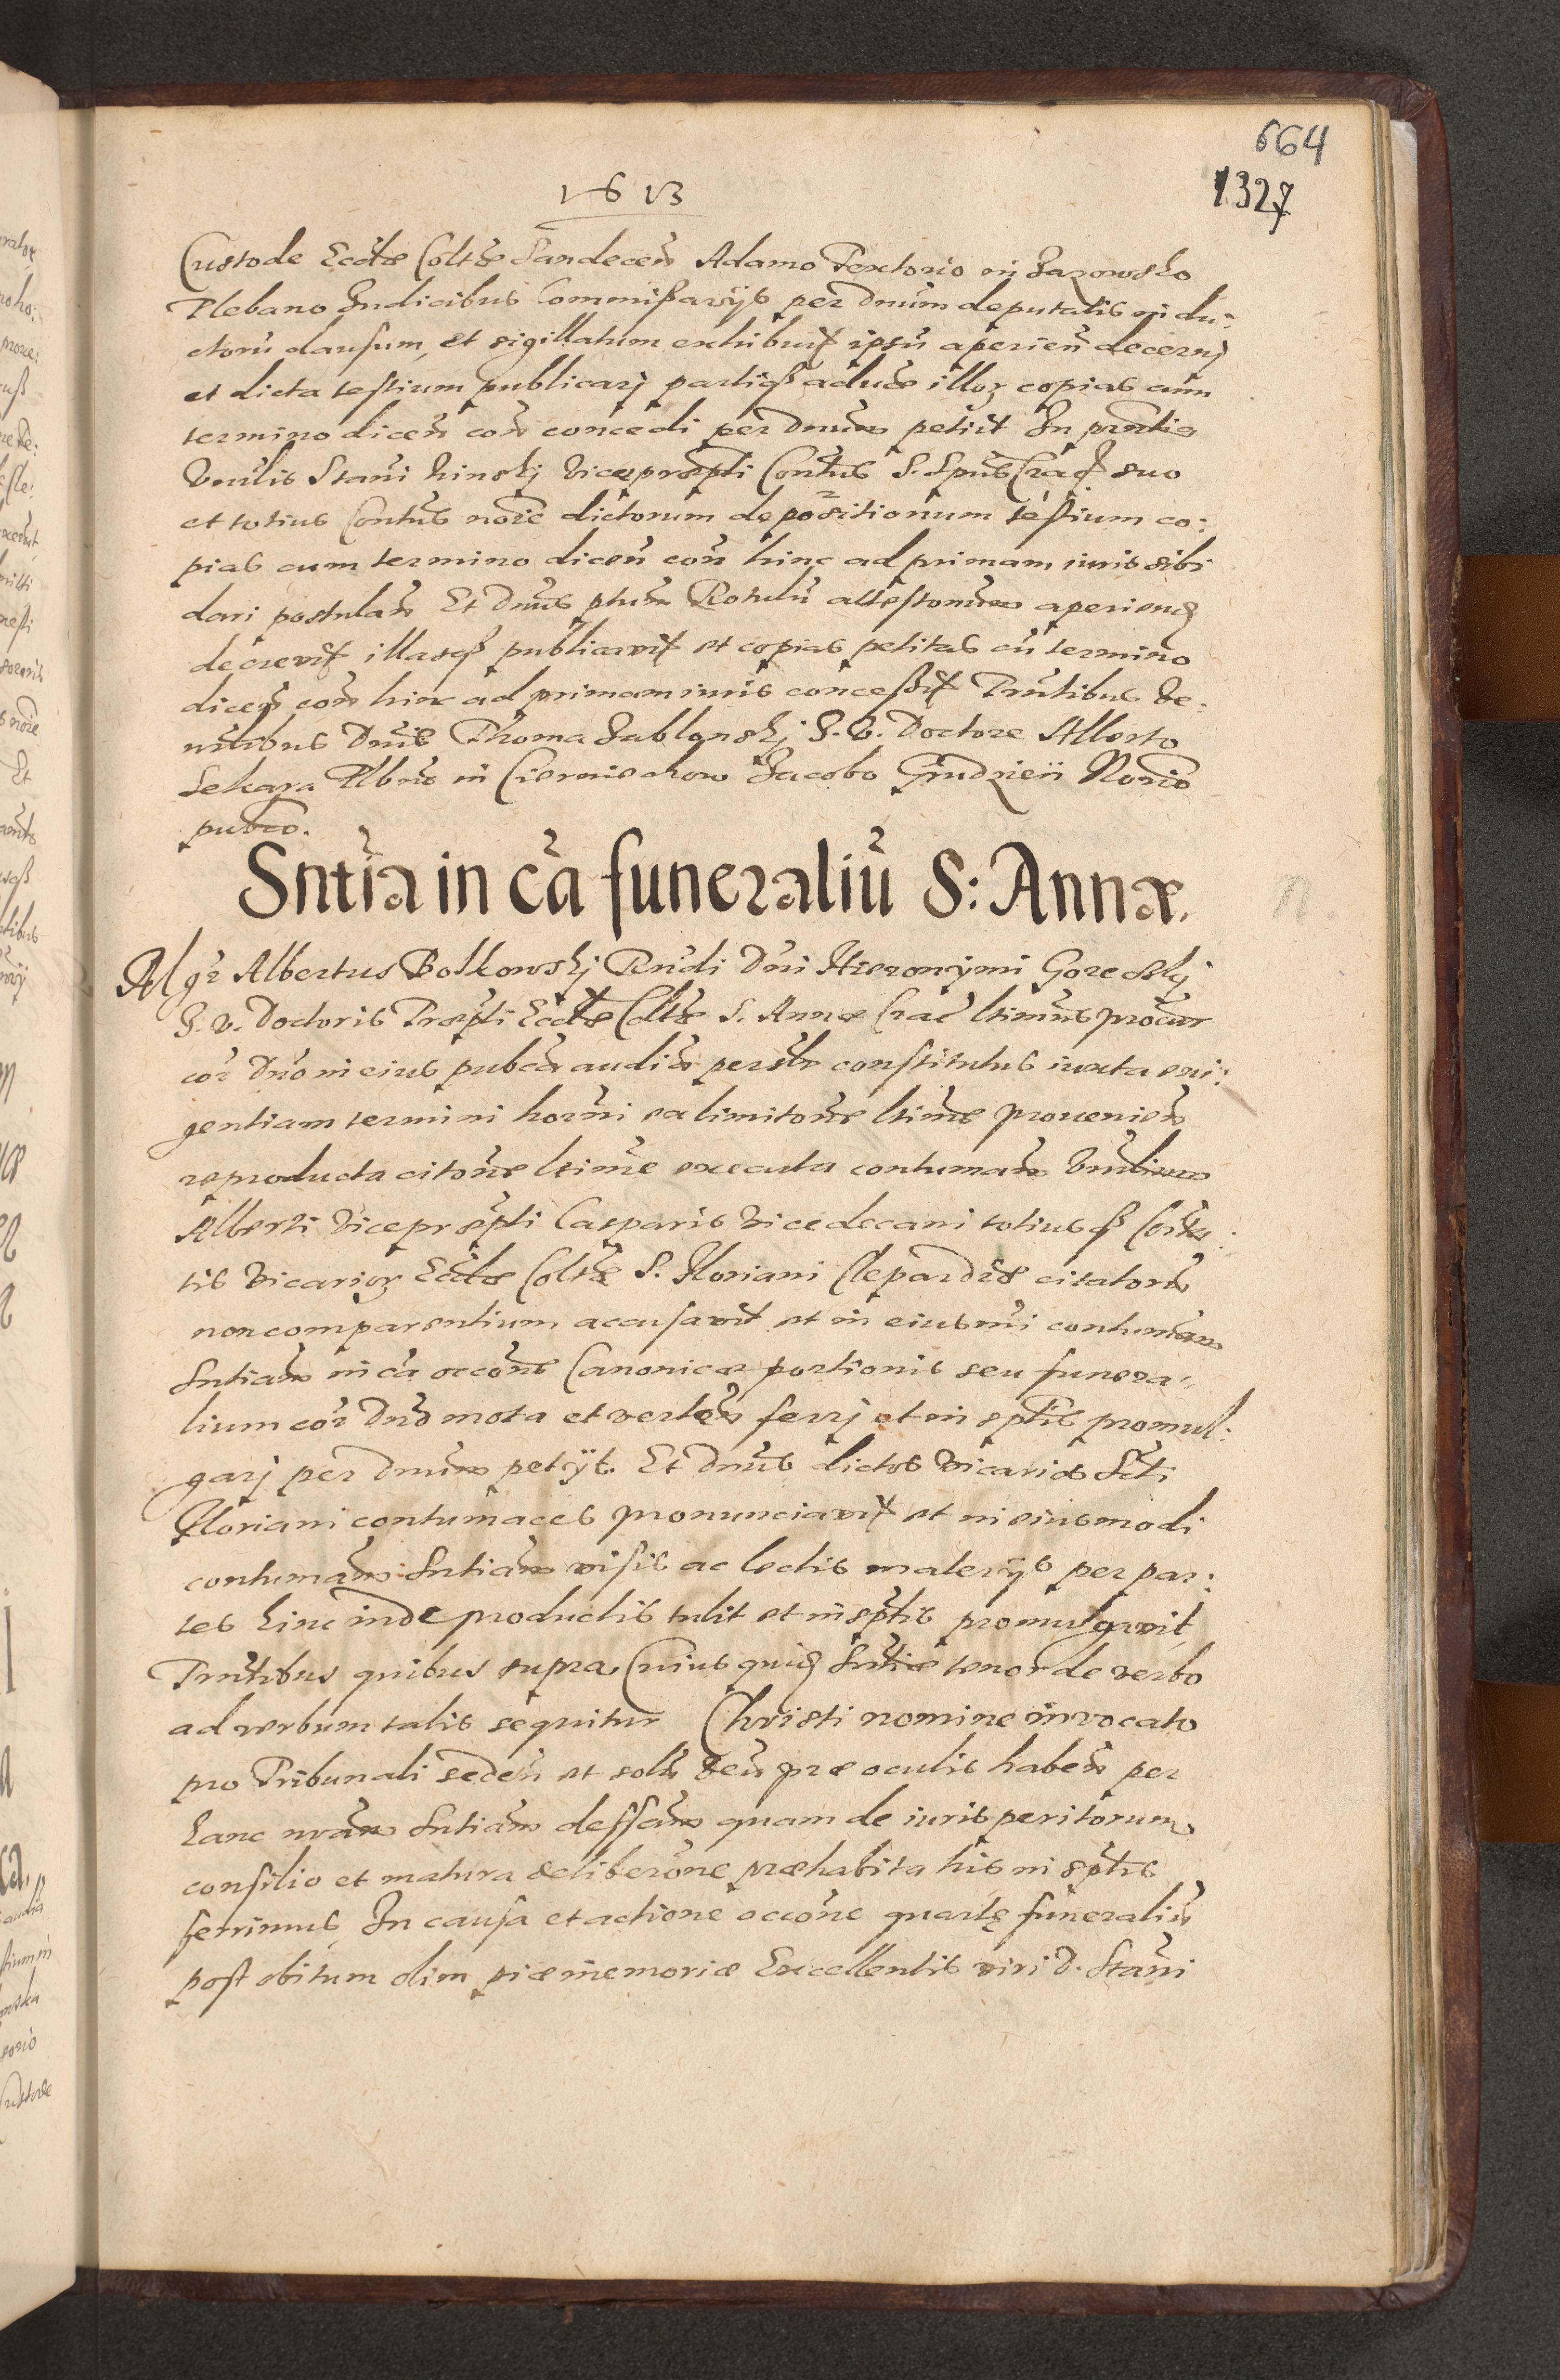 664
1613
1327
Custode Eccłae Coltae Sandecen̄ Adamo Textorio in Jazowsko
Plebano Judicibus Commissarijs per Dnum deputatis in du:
ctoru clausum, et sigillatum exhibuit ipsū aperien̄ decernj
et dicta testium publicarj partiq₃ aduae illoꝝ copias cum
termino dicen̄ con̄ concedi per Dnum petiit In pntia
Vnlis Stani Kinskj Vicepraepti Contus S. Spus Crac̄ suo
et totius Contus noie dictorum depositionum testium co:
pias cum termino dicen̄ con̄ hinc ad primam iuris sibi
dari postulan̄ Et Dnus ptum Rotulū attestonum aperiend
decrevit illasq₃ publicavit et copias petitas cū termino
dicen̄ con̄ hinc ad primam iuris concessit Pntibus Ve:
nlibus Dnis Thoma Jablonskj J. V. Doctore Alberto
Sekara Plbno in Ciernichow Jacobo Grudzien Norio
pubco.
Sntia in cā funeraliū S: Annæ.
n.
Mgr Albertus Bolkowskj Rndi Dni Hieronymi Goreckj
J. V. Doctoris Praepti Eccłae Coltae S. Annae Crac̄ ltimus procur
cor Dno in eius pubca audia persłr constitutus iuxta exi:
gentiam termini horni ex limitone ltime provenien̄
reproducta citone ltime executa contumam Vnlium
Alberti Vicepraepti Casparis Vicedecani totiusq₃ Cōita:
tis Vicarioꝝ Eccłae Coltae S. Floriani Clepardiae citatorū
non comparentium accusavit et in eiusmi contumam
Sntiam in cā occone Canonicae portionis seu funera:
lium cor Dno mota et verten̄ ferrj et in sptis promul:
garj per Dnum petijt. Et Dnus dictos Vicarios Scti
Floriani contumaces pronunciavit et in eiusmodi
contumam Sntiam visis ac lectis materijs per par:
tes hinc inde productis tulit et in sptis promulgavit
Pntibus quibus supra, Cuius quid Sntiae tenor de verbo
ad verbum talis sequitur Christi nomine invocato
pro Tribunali seden̄ et solū Deū prae oculis haben̄ per
hanc nram Sntiam deffam quam de iuris peritorum
consilio et matura deliberone praehabita his in sptis
ferimus, In causa et actione occone quartę funeraliū
post obitum olim piae memoriae Excellentis viri D. Stani